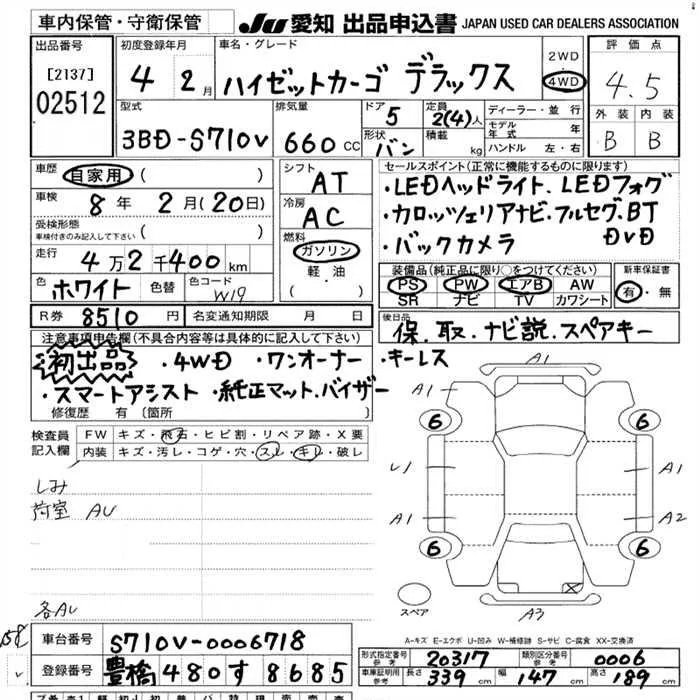 車内保管・守衛保管 JU 愛知 出品申込書 JAPAN USED CAR DEALERS ASSOCIATION
出品番号 [2137] 02512
初度登録年月 4 2月
車名・グレード ハイゼットカーゴ デラックス
2WD 4WD
評価点 4.5
外装 内装
B B
型式 3BD-S710V
排気量 660 CC
ドア 5 定員 2(4)人
形状 バン 積載 kg
ディーラー・並行
モデル年式 年
ハンドル 左・右
車歴 自家用 ( )
車検 8年 2月(20日)
受検形態
車検付きのみ記入して下さい ( )
走行 4万2千400km
色 ホワイト 色替 色コード W19
シフト AT
冷房 AC
燃料 ガソリン
軽・油
( )
セールスポイント(正常に機能するものに限ります)
・LEDヘッドライト、LEDフォグ
・カロッツェリアナビ・フルセグ、BT
・バックカメラ DVD
装備品(純正品に限り○をつけてください) 新車保証書
PS PW エアB AW 有・無
SR ナビ TV カワシート
R券 8510円 名変通知期限 月 日
後日品 保、取、ナビ説、スペアキー
注意事項申告欄(不具合内容等は具体的に記入して下さい)
初出品 ・4WD ・ワンオーナー ・キーレス
・スマートアシスト ・純正マット、バイザー
修復歴 有 〔箇所 〕
検査員記入欄 FW キズ・飛石・ヒビ割・リペア跡・X要
内装 キズ・汚レ・コゲ・穴・スレ・キレ・破レ
しみ
荷室 AU
各AU
A1
A1
6 6
レ1 A1
A1 A2
6 6
スペア
A3
A-キズ E-エクボ U-凹み W-補修跡 S-サビ C-腐食 XX-交換済
車台番号 S710V-0006718
登録番号 豊橋 480 す 8685
形式指定番号 参考 20317 類別区分番号 参考 0006
車庫証明用 参考 長さ 339cm 幅 147cm 高さ 189cm